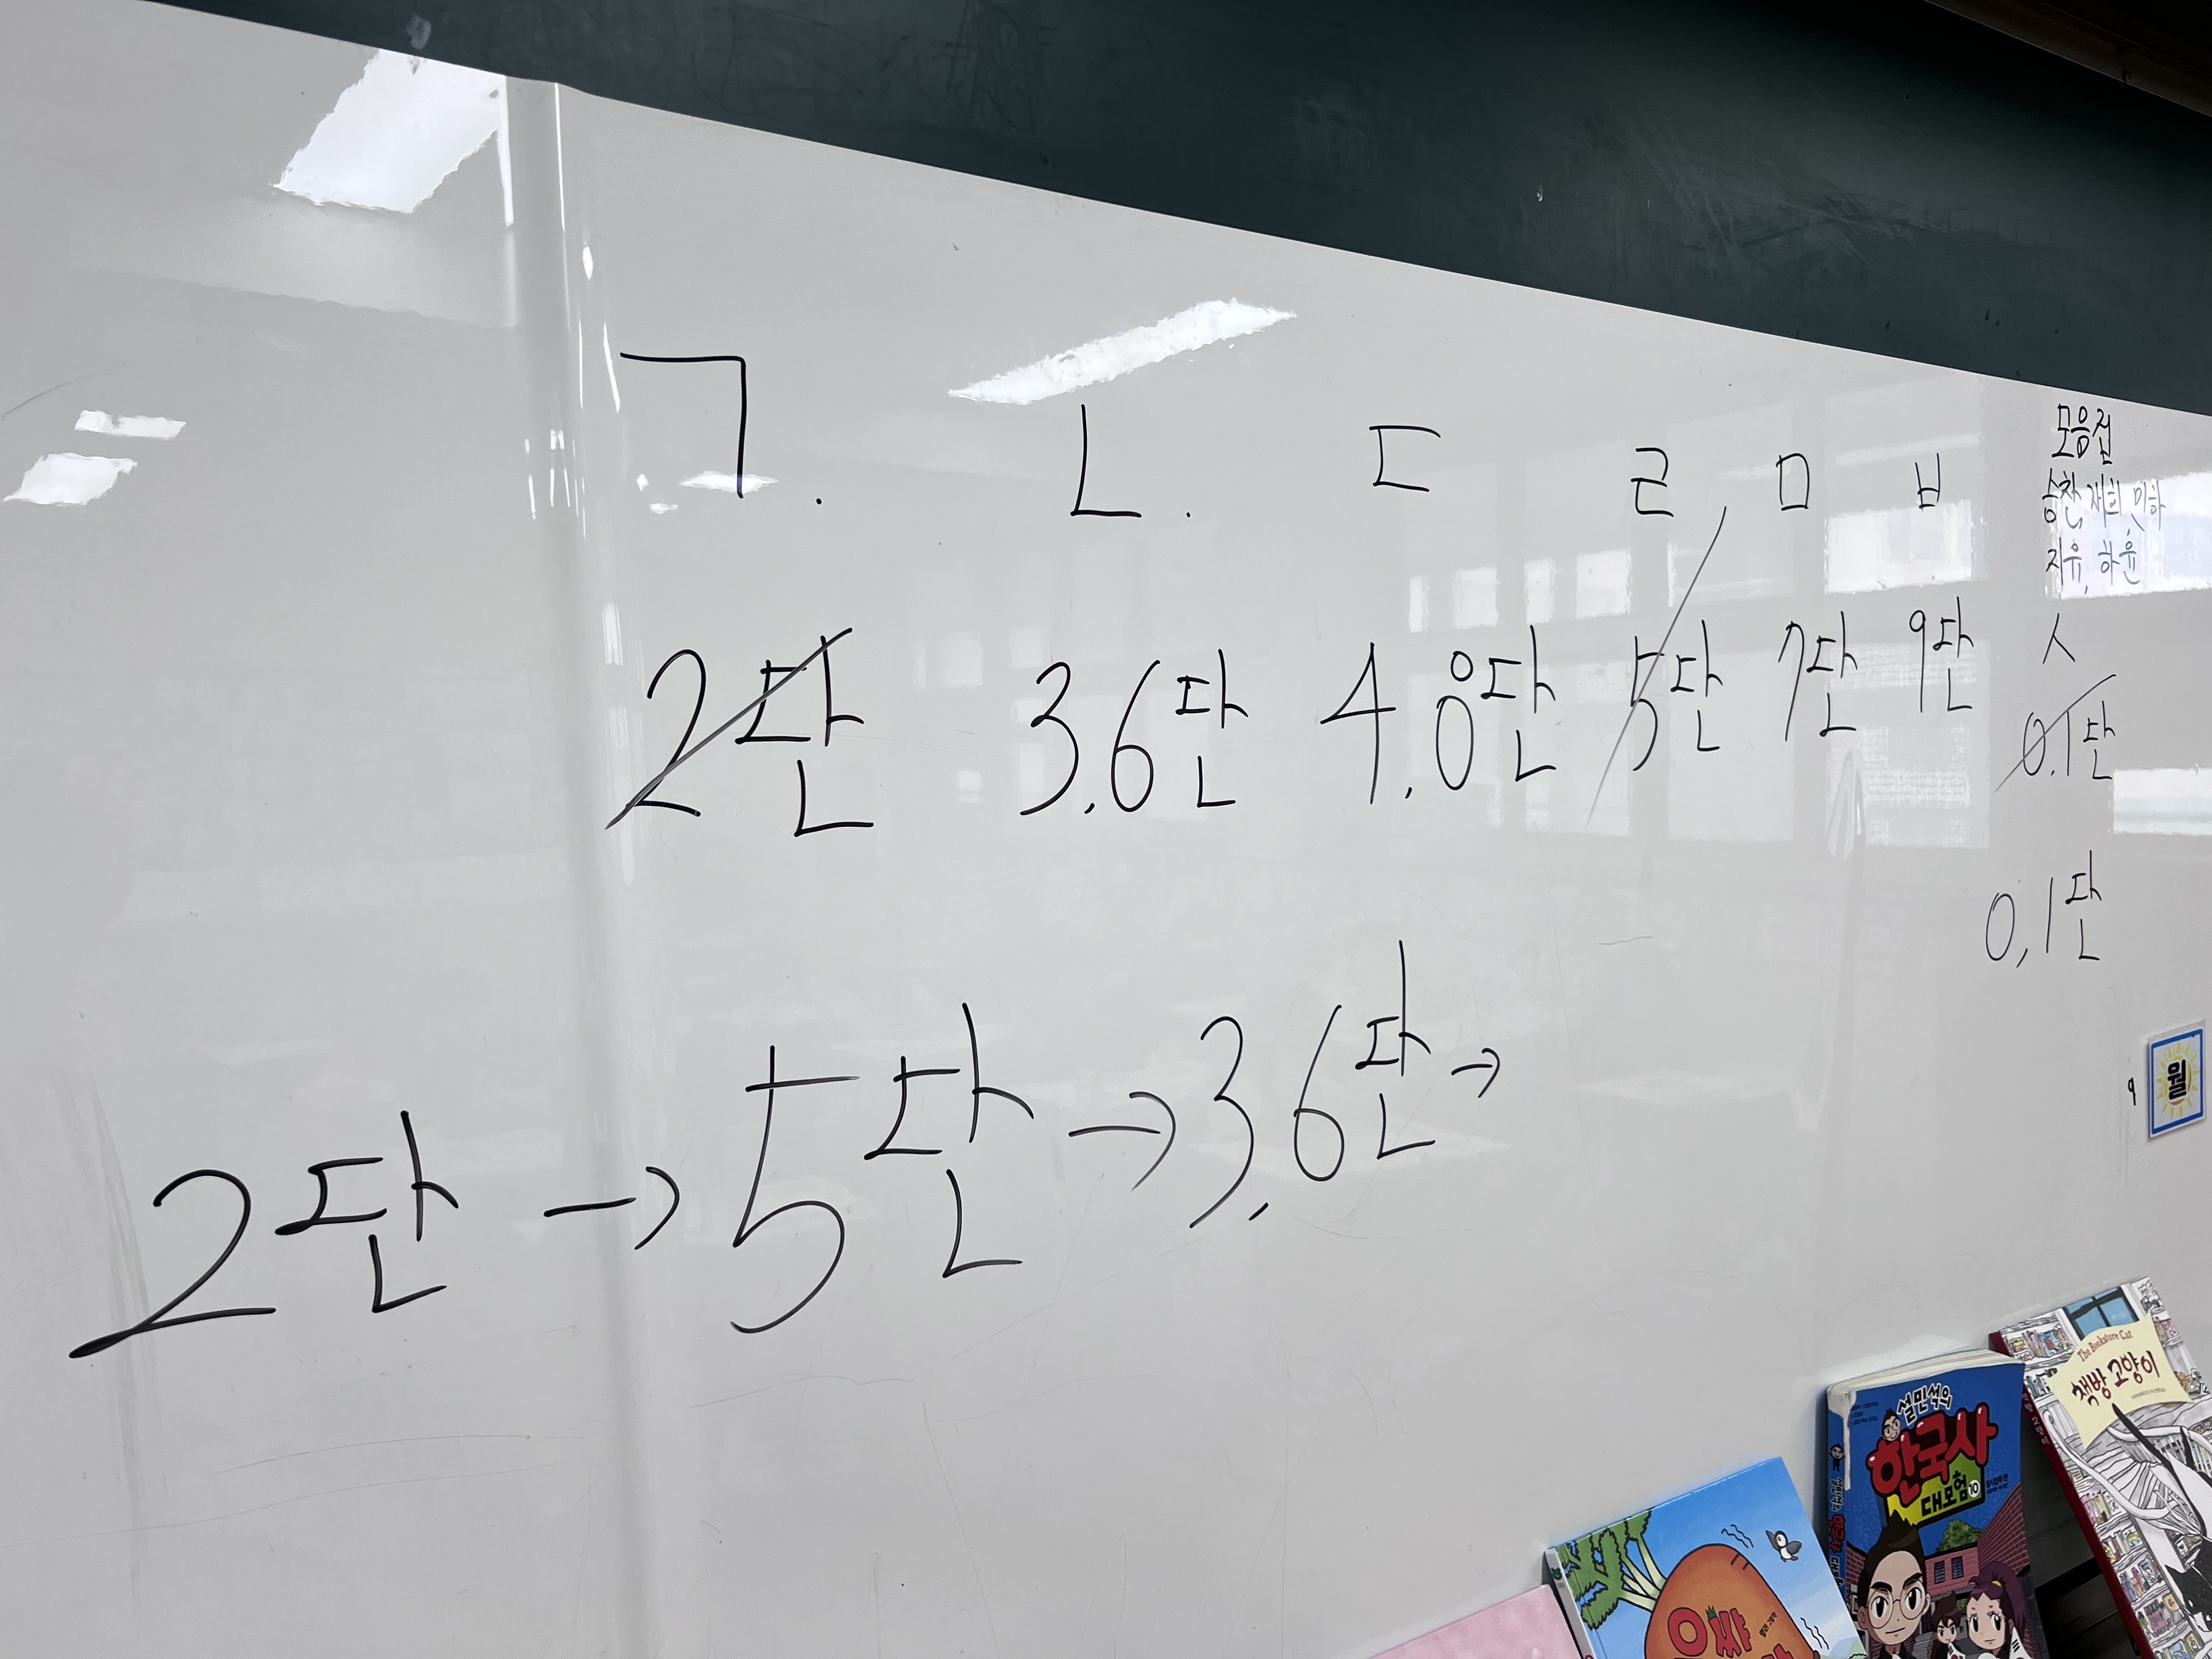 ㄱ. ㄴ. ㄷ ㄹ, ㅁ ㅂ
모음전
승찬, 재희, 민하
지유, 하윤
2단 3.6단 4.8단 5단 7단 9단
ㅅ
0.1단
0,1단
2단 → 5단 → 3.6단 →
9
월
The Bookstore Cat
책방 고양이
설민석의
한국사
대모험 10
으쌰